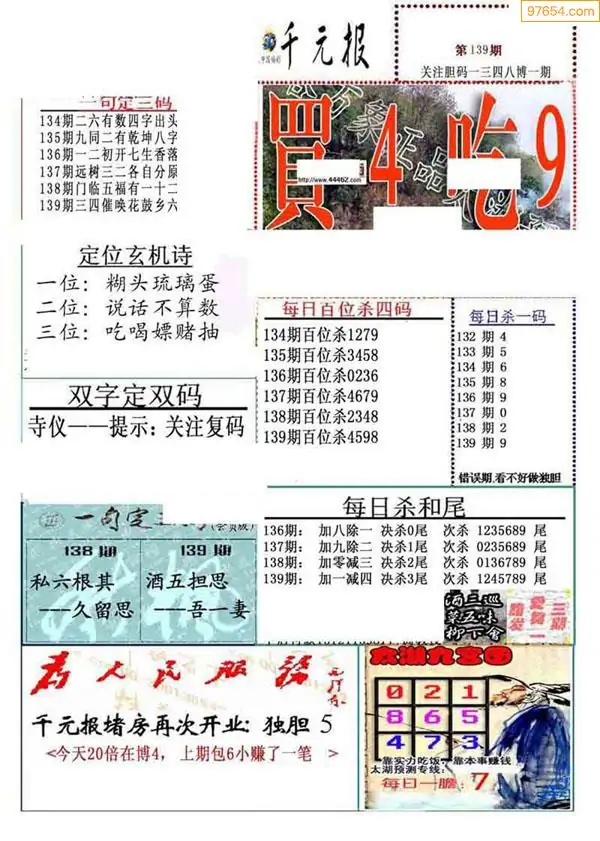 97654.com
千元报
中国福彩
第139期
关注胆码一三四八博一期
一句定三码
134期二六有数四字出头
135期九同二有乾坤八字
136期一二初开七生香落
137期远树三二各自分原
138期门临五福有一十二
139期三四催唤花鼓乡六
買4吃9
http://www.44462.com
定位玄机诗
一位：糊头琉璃蛋
二位：说话不算数
三位：吃喝嫖赌抽
每日百位杀四码
134期百位杀1279
135期百位杀3458
136期百位杀0236
137期百位杀4679
138期百位杀2348
139期百位杀4598
每日杀一码
132 期 4
133 期 5
134 期 6
135 期 8
136 期 9
137 期 0
138 期 2
139 期 9
错误期,看不好做独胆
双字定双码
寺仪——提示：关注复码
一句定
(会员版)
138 期
私六根其
---久留思
139 期
酒五担思
---吾一妻
每日杀和尾
136期： 加八除一 决杀0尾 次杀 1235689 尾
137期： 加九除二 决杀1尾 次杀 0235689 尾
138期： 加零减三 决杀2尾 次杀 0136789 尾
139期： 加一减四 决杀3尾 次杀 1245789 尾
酒三巡
菜五味
柳下會
三期
爱舞一
路发
为人民服务
千元报堵房再次开业：独胆 5
<今天20倍在博4，上期包6小赚了一笔 >
太湖九宫图
0 2 1
8 6 5
4 7 3
靠实力吃饭,靠本事赚钱
太湖预测专线：
每日一胆：7